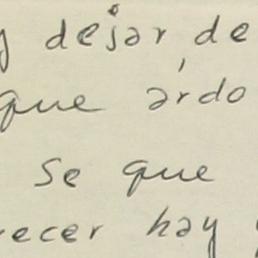 y dejar de
que árdo
Se que
recer hay